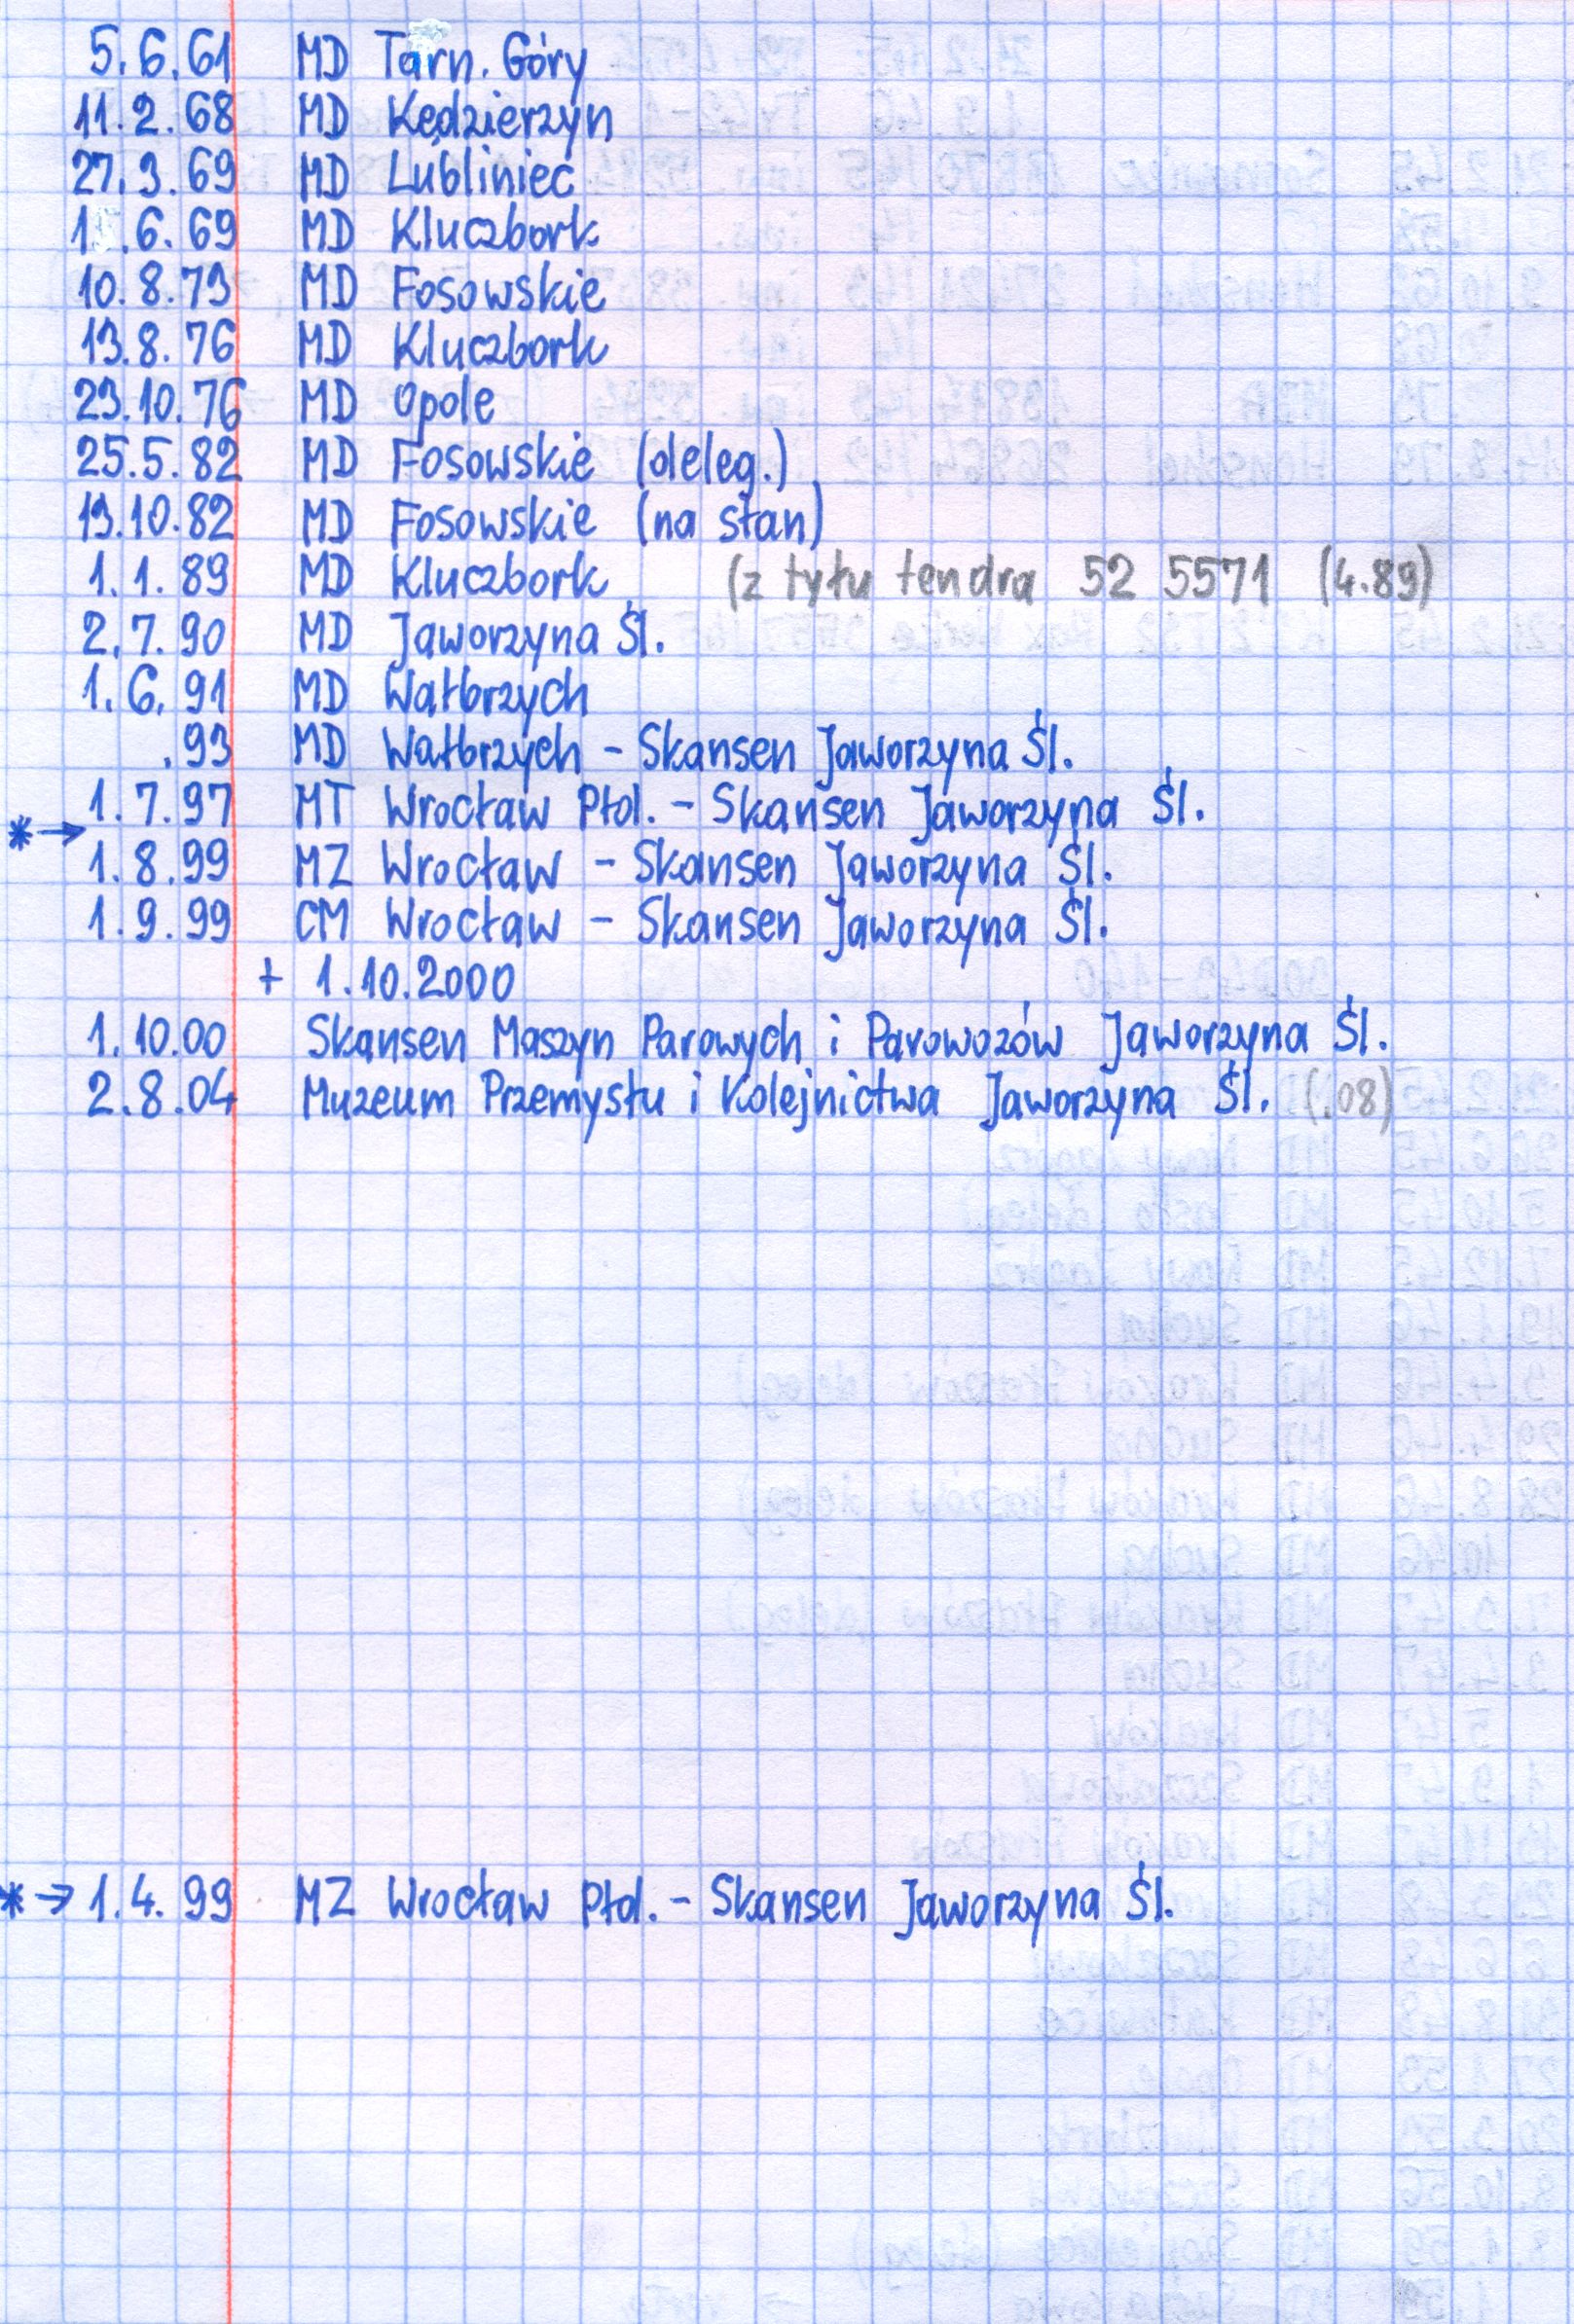 5.6.61 MD Tarn. Góry
11.2.68 MD Kędzierzyn
27.3.69 MD Lubliniec
1 .6.69 MD Kluczbork
10.8.73 MD Fosowskie
13.8.76 MD Kluczbork
23.10.76 MD Opole
25.5.82 MD Fosowskie (deleg.)
13.10.82 MD Fosowskie (na stan)
1.1.89 MD Kluczbork (z tyłu tendra 52 5571 (4.89)
2.7.90 MD Jaworzyna Śl.
1.6.91 MD Wałbrzych
.93 MD Wałbrzych - Skansen Jaworzyna Śl.
1.7.97 MT Wrocław Płd. - Skansen Jaworzyna Śl.
* →
1.8.99 MZ Wrocław - Skansen Jaworzyna Śl.
1.9.99 CM Wrocław - Skansen Jaworzyna Śl.
+ 1.10.2000
1.10.00 Skansen Maszyn Parowych i Parowozów Jaworzyna Śl.
2.8.04 Muzeum Przemysłu i Kolejnictwa Jaworzyna Śl. (.08)
* → 1.4.99 MZ Wrocław Płd. - Skansen Jaworzyna Śl.